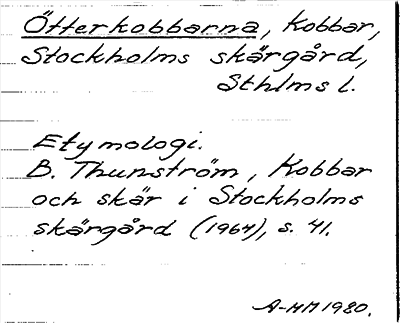 Ötterkobbarna, Kobbar,
Stockholms skärgård,
Sthlms l.
Etymologi.
B. Thunström, Kobbar
och skär i Stockholms
skärgård (1964), s. 41.
A-MM 1980.